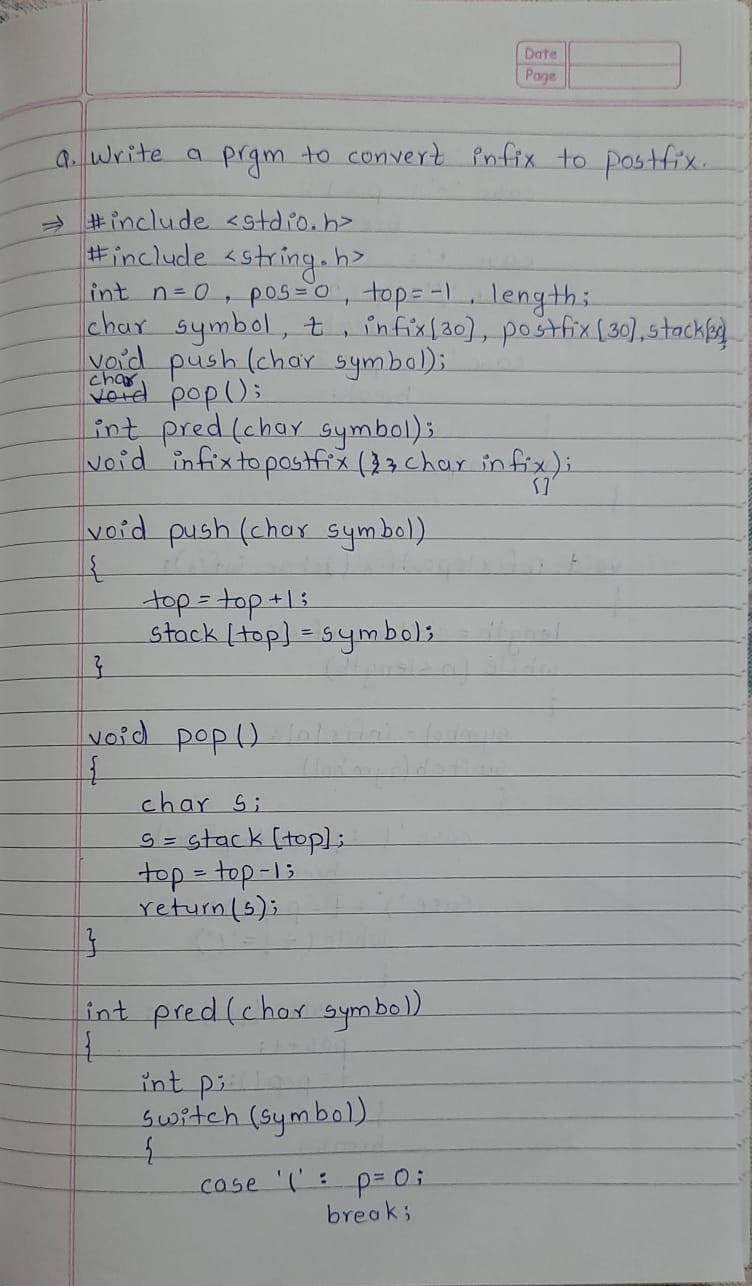 Date
Page
Q. Write a prgm to convert infix to postfix.
⇒ #include <stdio.h>
#include <string.h>
int n=0, pos=0, top=-1, length;
char symbol, t, infix[30], postfix[30], stack[30]
void push(char symbol);
char
void pop();
int pred(char symbol);
void infixtopostfix( char infix);
[]
void push(char symbol)
{
top=top+1;
stack[top]=symbol;
}
void pop()
{
char s;
s=stack[top];
top=top-1;
return(s);
}
int pred(char symbol)
{
int p;
switch(symbol)
{
case '(': p=0;
break;